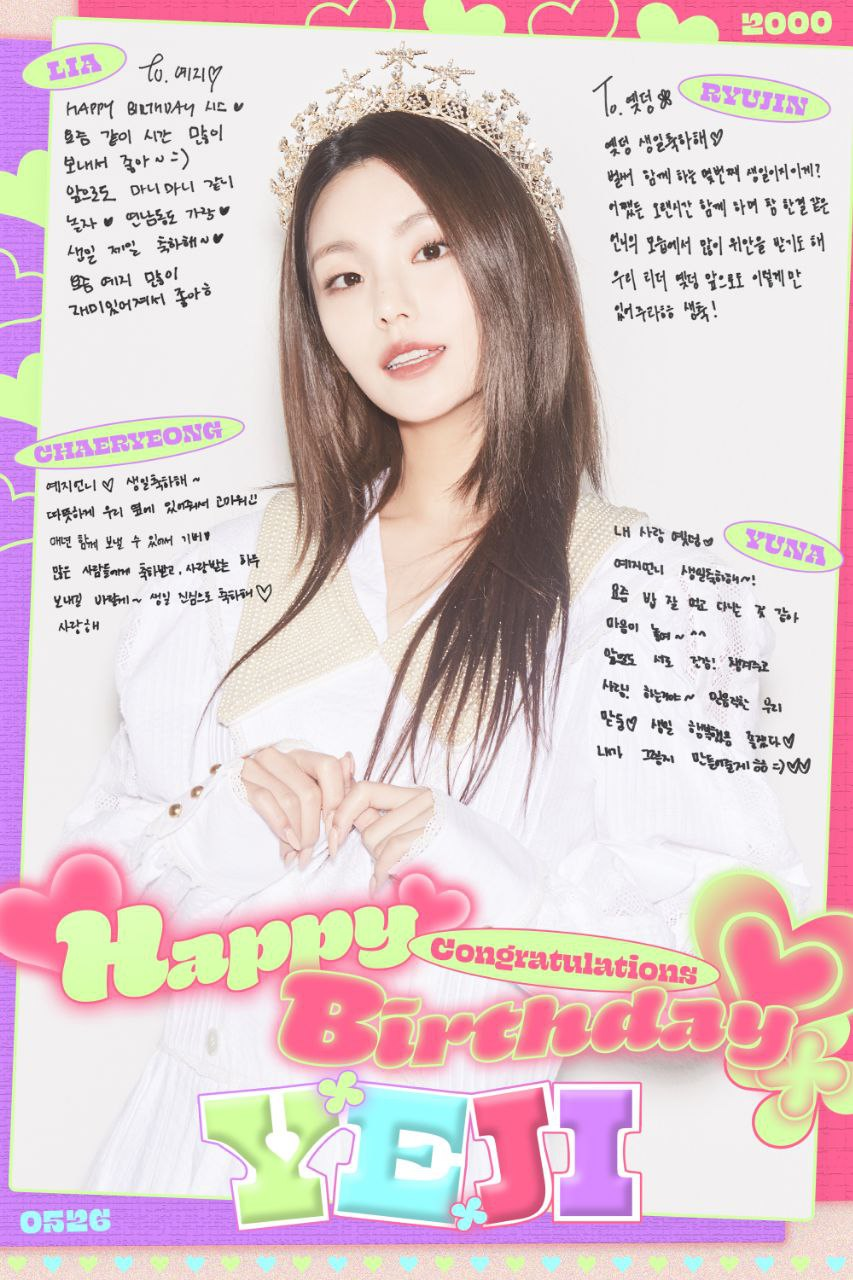 2000
LIA
To. 예지♡
HAPPY BIRTHDAY 시스 ♥
요즘 같이 시간 많이
보내서 좋아~ =)
앞으로도 마니마니 같이
놀자 ♥ 연남동도 가장 ♥
생일 제일 축하해~ ♥
요즘 예지 많이
재미있어져서 좋아ㅎ
RYUJIN
To. 옛덩
옛덩 생일축하해♡
벌써 함께 하는 몇번째 생일이지이게?
어쨌든 오랜시간 함께 하며 참 한결 같은
언니의 모습에서 많이 위안을 받기도 해
우리 리더 옛덩 앞으로도 이렇게만
있어주라하하 생축!
CHAERYEONG
예지언니 ♡ 생일축하해~
따뜻하게 우리 옆에 있어줘서 고마워!!
매년 함께 보낼 수 있어서 기뻐♥
많은 사람들에게 축하받고, 사랑받는 하루
보내길 바랄게~ 생일 진심으로 축하해♡
사랑해
YUNA
내 사랑 옛덩♡
예지언니 생일축하해~!
요즘 밥 잘 먹고 다니는 것 같아
마음이 놓여~ ^^
앞으로도 서로 건강! 챙겨주고
사랑! 하는거야~ 믿음직한 우리
만둥♡ 생일 행복했음 좋겠다♡
내가 그렇게 만들어줄게 =)♡♡
Happy
Congratulations
Birthday
YEJI
0526